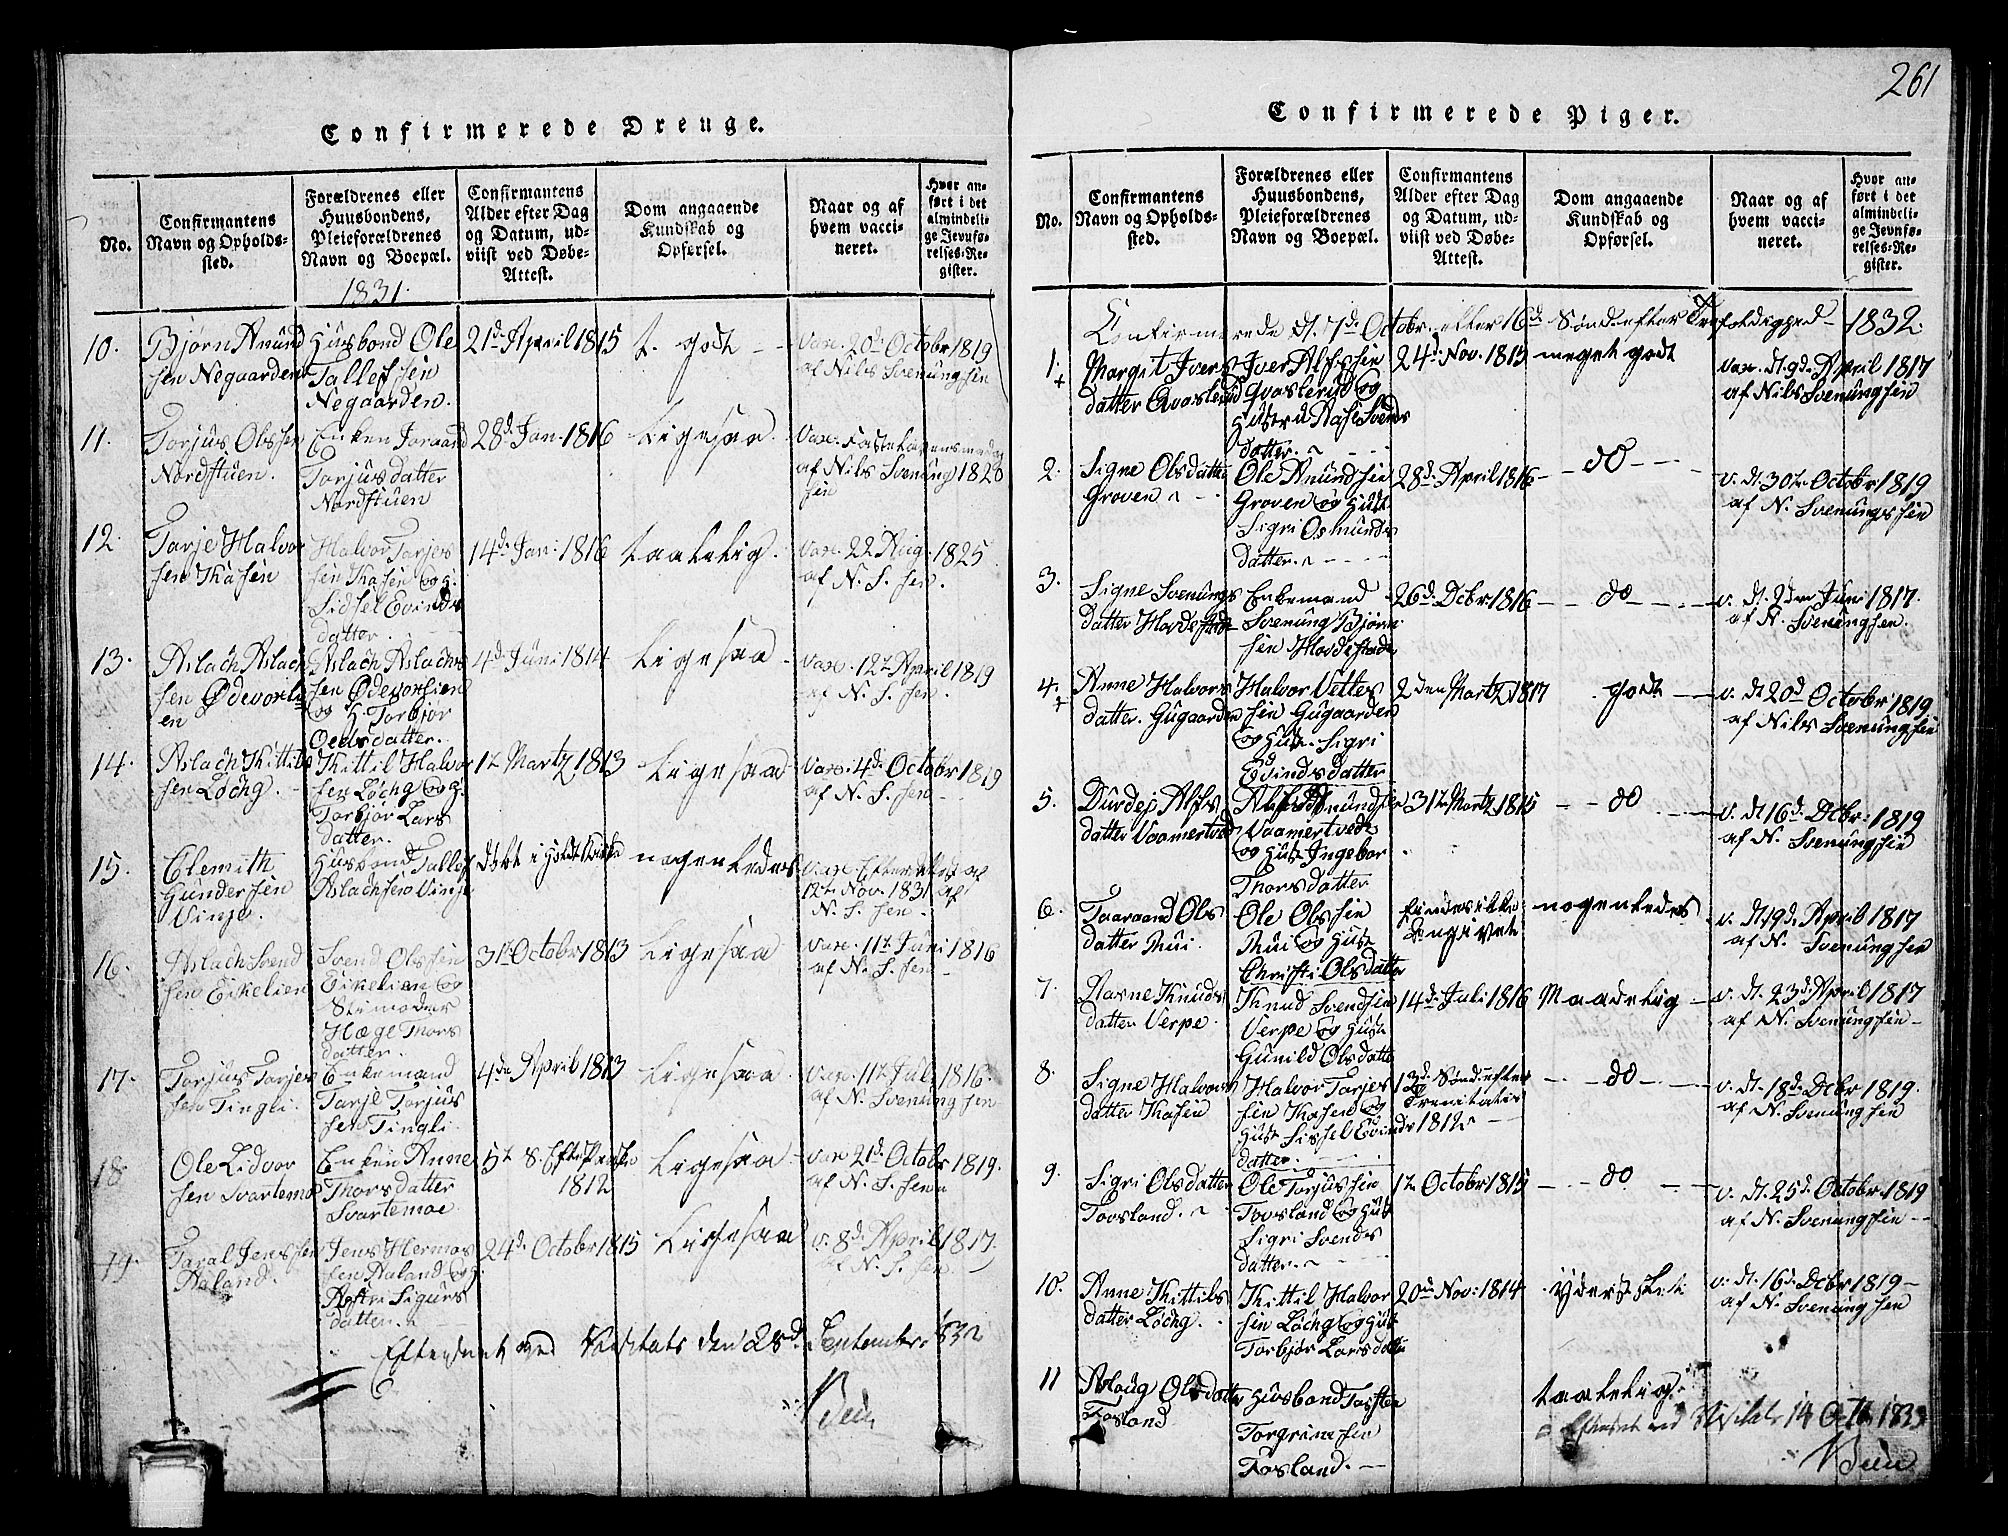 Confirmerede Drenge.
No.
Confirmantens
Navn og Opholds-
sted.
Forældrenes eller
Huusbondens,
Pleieforældrenes
Navn og Boepæl.
1831.
Confirmantens
Alder efter Dag
og Datum, ud-
viist ved Døbe-
Attest.
Dom angaaende
Kundskab og
Opførsel.
Naar og af
hvem vacci-
neret.
Hvor an-
ført i det
almindeli-
ge Jevnfø-
relses-Re-
gister.
10.
Bjørn Amund
sen Negaarden
Husbond Ole
Tallefsen
Negaarden.
21d April 1815
t. godt
Vax. 20d Octobr 1819
af Nils Svenungsen
11.
Torjus Olssen
Nordstuen.
Enken Joraand
Torjusdatter
Nordstuen
28d Jan. 1816
Ligesaa
Vax. Fastelagensmadag
af Nils Svenung 1820
sen
12.
Tarje Halvor
sen Kasin
Halvor Tarjes
sen Kasin og h.
Sidsel Evinds
datter.
14d Jan: 1816
taalelig.
Vax. 22 Aug. 1825
af N. S. sen.
13.
Aslach Aslach
sen Ødevorli
en
Aslach Aslachs
sen Ødevorlien
og H. Torbjør
Oelsdatter.
4d Juni 1814
Ligesaa
Vax. 12t April 1819
af N. S. sen.
14.
Aslach Kittils
sen Løchg.
Kittil Halvor
sen Løchg og h.
Torbjør Lars
datter.
1t Martz 1813
Ligesaa
Vax. 4d Octobr 1819
af N. S. sen
15.
Clemith
Gundersen
Vinje.
Husbond Tallef
Aslachsen Vinje
døbt i Holdt Kirke
nogenledes
Vax. Efter Attest af
12t Nov. 1831 af
N. S. sen.
16.
Aslach Svend
sen Eikelien
Svend Olssen
Eikelien og
Stimoder
Hæge Thors
datter.
31t October 1813
Ligesaa
Vax. 11t Juni 1816
af N. S. sen
17.
Torjus Tarjes
sen Tingli.
Enkemand
Tarje Torjus
sen Tingli
4de April 1813
Ligesaa
Vax. 11t Juli 1816.
af N. Svenungsen
18
Ole Lidvor
sen Svartemoe
Enken Anne
Thorsdatter
Svartemoe
5t S. Eft. Paaske
1812
Ligesaa
Vax 21d Octobr 1819.
af N. S. sen
19.
Taral Jenssen
Aaland.
Jens Hermos
sen Aaland og h.
Astri Sigurs
datter.
24d October 1815
Ligesaa
v. 8d April 1817.
af N. S. sen.
Efterseet ved Visitats den 28d September 1832
261
Confirmerede Piger.
No.
Confirmantens
Navn og Opholds-
sted.
Forældrenes eller
Huusbondens,
Pleieforældrenes
Navn og Boepæl.
Confirmantens
Alder efter Dag
og Datum, ud-
viist ved Døbe-
Attest.
Dom angaaende
Kundskab og
Opførsel.
Naar og af
hvem vacci-
neret.
Hvor an-
ført i det
almindeli-
ge Jevnfø-
relses-Re-
gister.
Confirmerede d. 7d Octobr. eller 16d Sønd: efter Trefoldighed 1832.
1.
+
Margit Ivers
datter Qvaslerud
Iver Alfssen
Qvaslerud og
Hustru Aase Svends
datter.
24d Nov. 1815
meget godt
Vax. d. 9d April 1817
af Nils Svenungsen
2.
Signe Olsdatter
Groven
Ole Amundsen
Groven og Hust.
Sigri Osmunds
datter.
28d April 1816
do
v. d. 30t October 1819
af N. Svenungssen
3.
Signe Svenungs
datter Hordestade
Enkemand
Svenung Bjørn
sen Hordestade
26d Dcbr 1816
do
v. d. 2den Juni 1817.
af N. Svenungsen.
4.
+
Anne Halvors
datter. Gugaarden
Halvor Vettes
sen Gugaarden
og Hust. Sigri
Evindsdatter
2den Martz 1817
godt
v. d 20d October 1819
af Nils Svenungsen
5.
Durdej Alfs
datter Vaamertvedt
Alf Amundsen
Vaamertvedt
og Hust Ingebor
Thorsdatter
31t Martz 1815
do
v. d 16d Dcbr: 1819
af N. Svenungsen
6.
Taaraand Ols
datter Mui
Ole Olssen
Mui og Hust
Christi Olsdatter
findes ikke
Angivet
nogenledes
v. d. 19d April 1817
af N. Svenungsen
7.
Aasne Knuds
datter Verpe
Knud Svendsen
Verpe og Hust
Gunild Olsdatter
14d Juli 1816
Maadelig
v. d. 23d April 1817
af N. Svenungsen
8.
Signe Halvors
datter Kasin
Halvor Tarjes
sen Kasen og
Hust Sissel Evinds
datter.
13d Sønd: efter
Trenitatis
1812
do
v. d. 18d Dcbr 1819.
af N. Svenungsen
9.
Sigri Olsdatter
Tovsland.
Ole Torjussen
Tovsland og Hust
Sigri Svends
datter.
1t October 1815
do
v. d. 25d October 1819
af N. Svenungsen
10.
Anne Kittils
datter Løchg.
Kittil Halvor
sen Løchg og Hust
Torbjør Larsdatter
20de Nov: 1814
yderst slet
v. d. 16d Dcbr 1819
af N. Svenungsen
11
Aslaug Olsdatter
Fosland
Husbond Tarften
Torgrimsen
Fosland.
taalelig
Efterseet ved Visitats 14 Octb. 1833